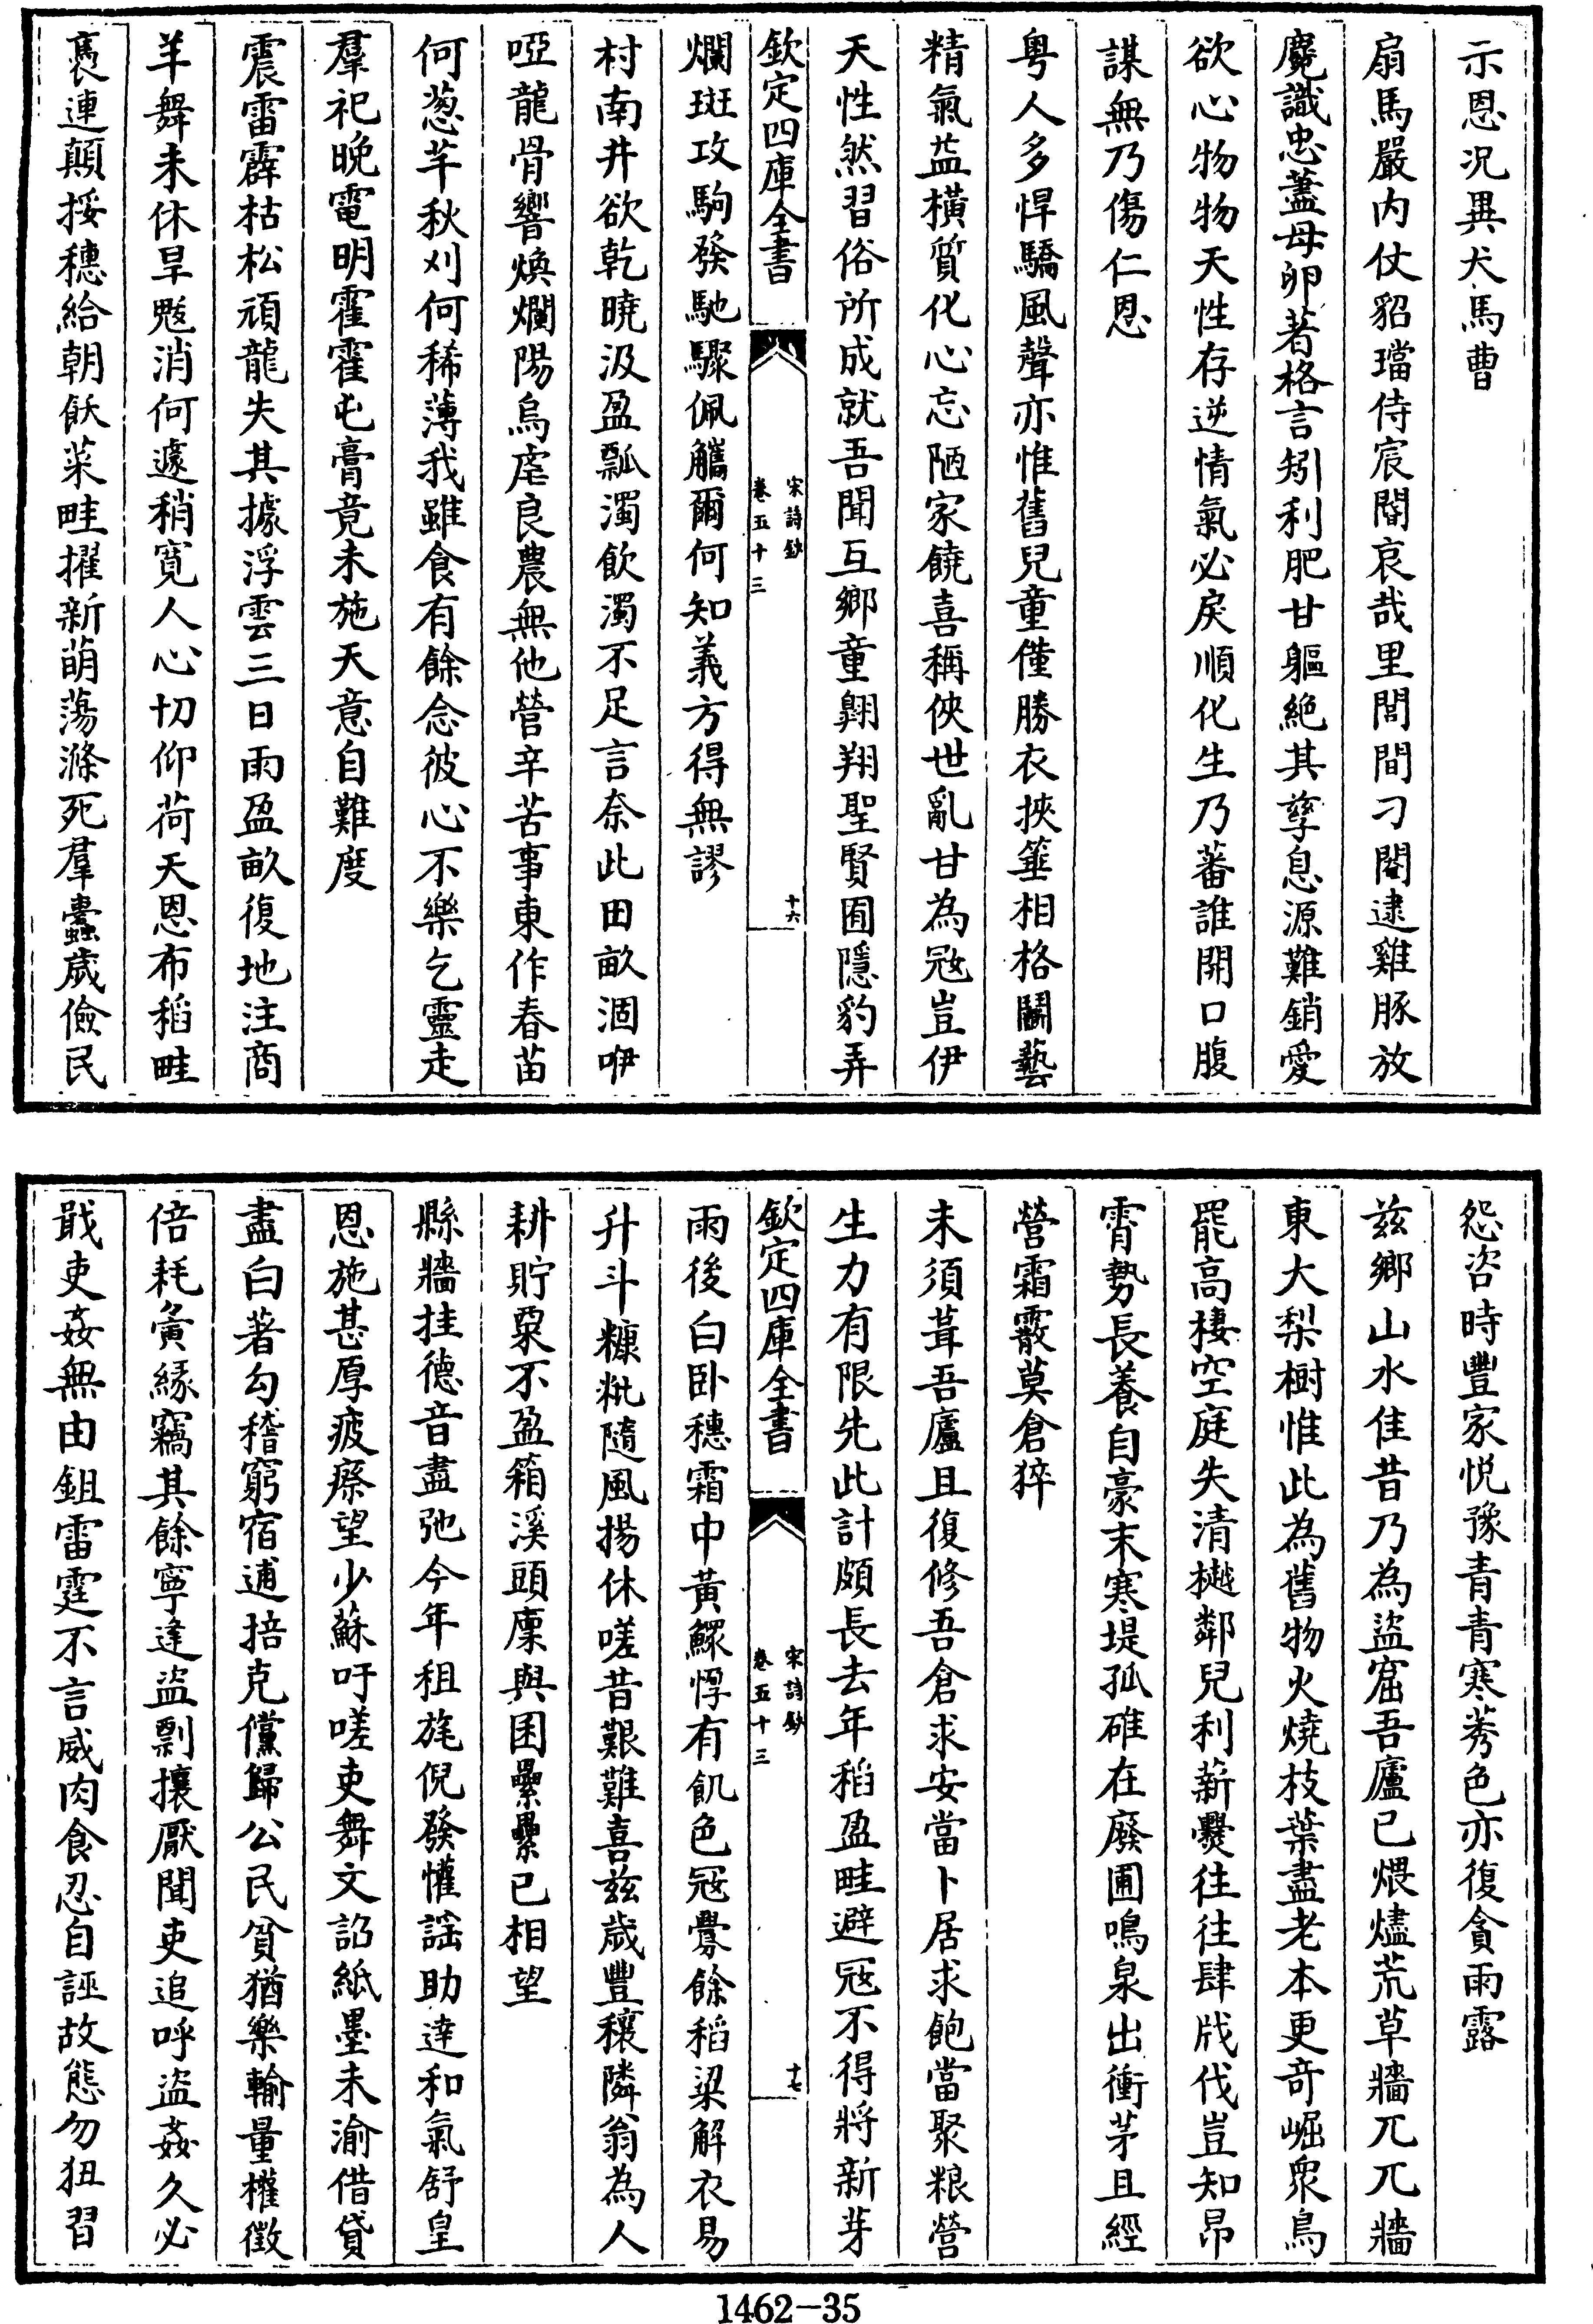 示恩况異犬馬曹
扇馬嚴内仗貂璫侍宸閽哀哉里閭間刁閹逮雞豚放
麑識忠蓋母卵著格言矧利肥甘軀絶其孳息源難銷愛
欲心物物天性存逆情氣必戾順化生乃蕃誰開口腹
謀無乃傷仁恩
粤人多悍驕風聲亦惟舊兒童僅勝衣挾箠相格鬭藝
精氣益橫質化心忘陋家饒喜稱俠世亂甘為冦豈伊
天性然習俗所成就吾聞互鄉童翺翔聖賢囿隱豹弄
欽定四庫全書
宋詩鈔
卷五十三
十六
斕斑攻駒發馳驟佩觿爾何知義方得無謬
村南井欲乾曉汲盈瓢濁飲濁不足言奈此田畝涸咿
啞龍骨響煥爛陽烏虐良農無他營辛苦事東作春苗
何葱芊秋刈何稀薄我雖食有餘念彼心不樂乞靈走
羣祀晚電明霍霍屯膏竟未施天意自難度
震雷霹枯松頑龍失其據浮雲三日雨盈畝復地注商
羊舞未休旱魃消何遽稍寛人心切仰荷天恩布稻畦
褭連顛挼穗給朝飫菜畦擢新萌蕩滌死羣蠧歲儉民
怨咨時豐家悦豫青青寒莠色亦復貪雨露
兹鄉山水佳昔乃為盜窟吾廬已煨燼荒草牆兀兀牆
東大梨樹惟此為舊物火燒枝葉盡老本更奇崛衆鳥
罷高棲空庭失清樾鄰兒利薪爨往往肆戕伐豈知昂
霄勢長養自豪末寒堤孤碓在廢圃鳴泉出衝茅且經
營霜霰莫倉猝
未須葺吾廬且復修吾倉求安當卜居求飽當聚粮營
生力有限先此計頗長去年稻盈畦避冦不得將新芽
欽定四庫全書
宋詩鈔
卷五十三
十七
雨後白卧穗霜中黃鰥惸有飢色冦㸑餘稻粱解衣易
升斗糠粃隨風揚休嗟昔艱難喜兹歲豐穰隣翁為人
耕貯粟不盈箱溪頭廪與囷纍纍已相望
縣牆挂德音盡弛今年租旄倪發懽謡助達和氣舒皇
恩施甚厚疲瘵望少蘇吁嗟吏舞文詔紙墨未渝借貸
盡白著勾稽窮宿逋掊克儻歸公民貧猶樂輸量權徵
倍耗夤緣竊其餘寧逢盜剽攘厭聞吏追呼盜姦久必
戢吏姦無由鉏雷霆不言威肉食忍自誣故態勿狃習
1462-35